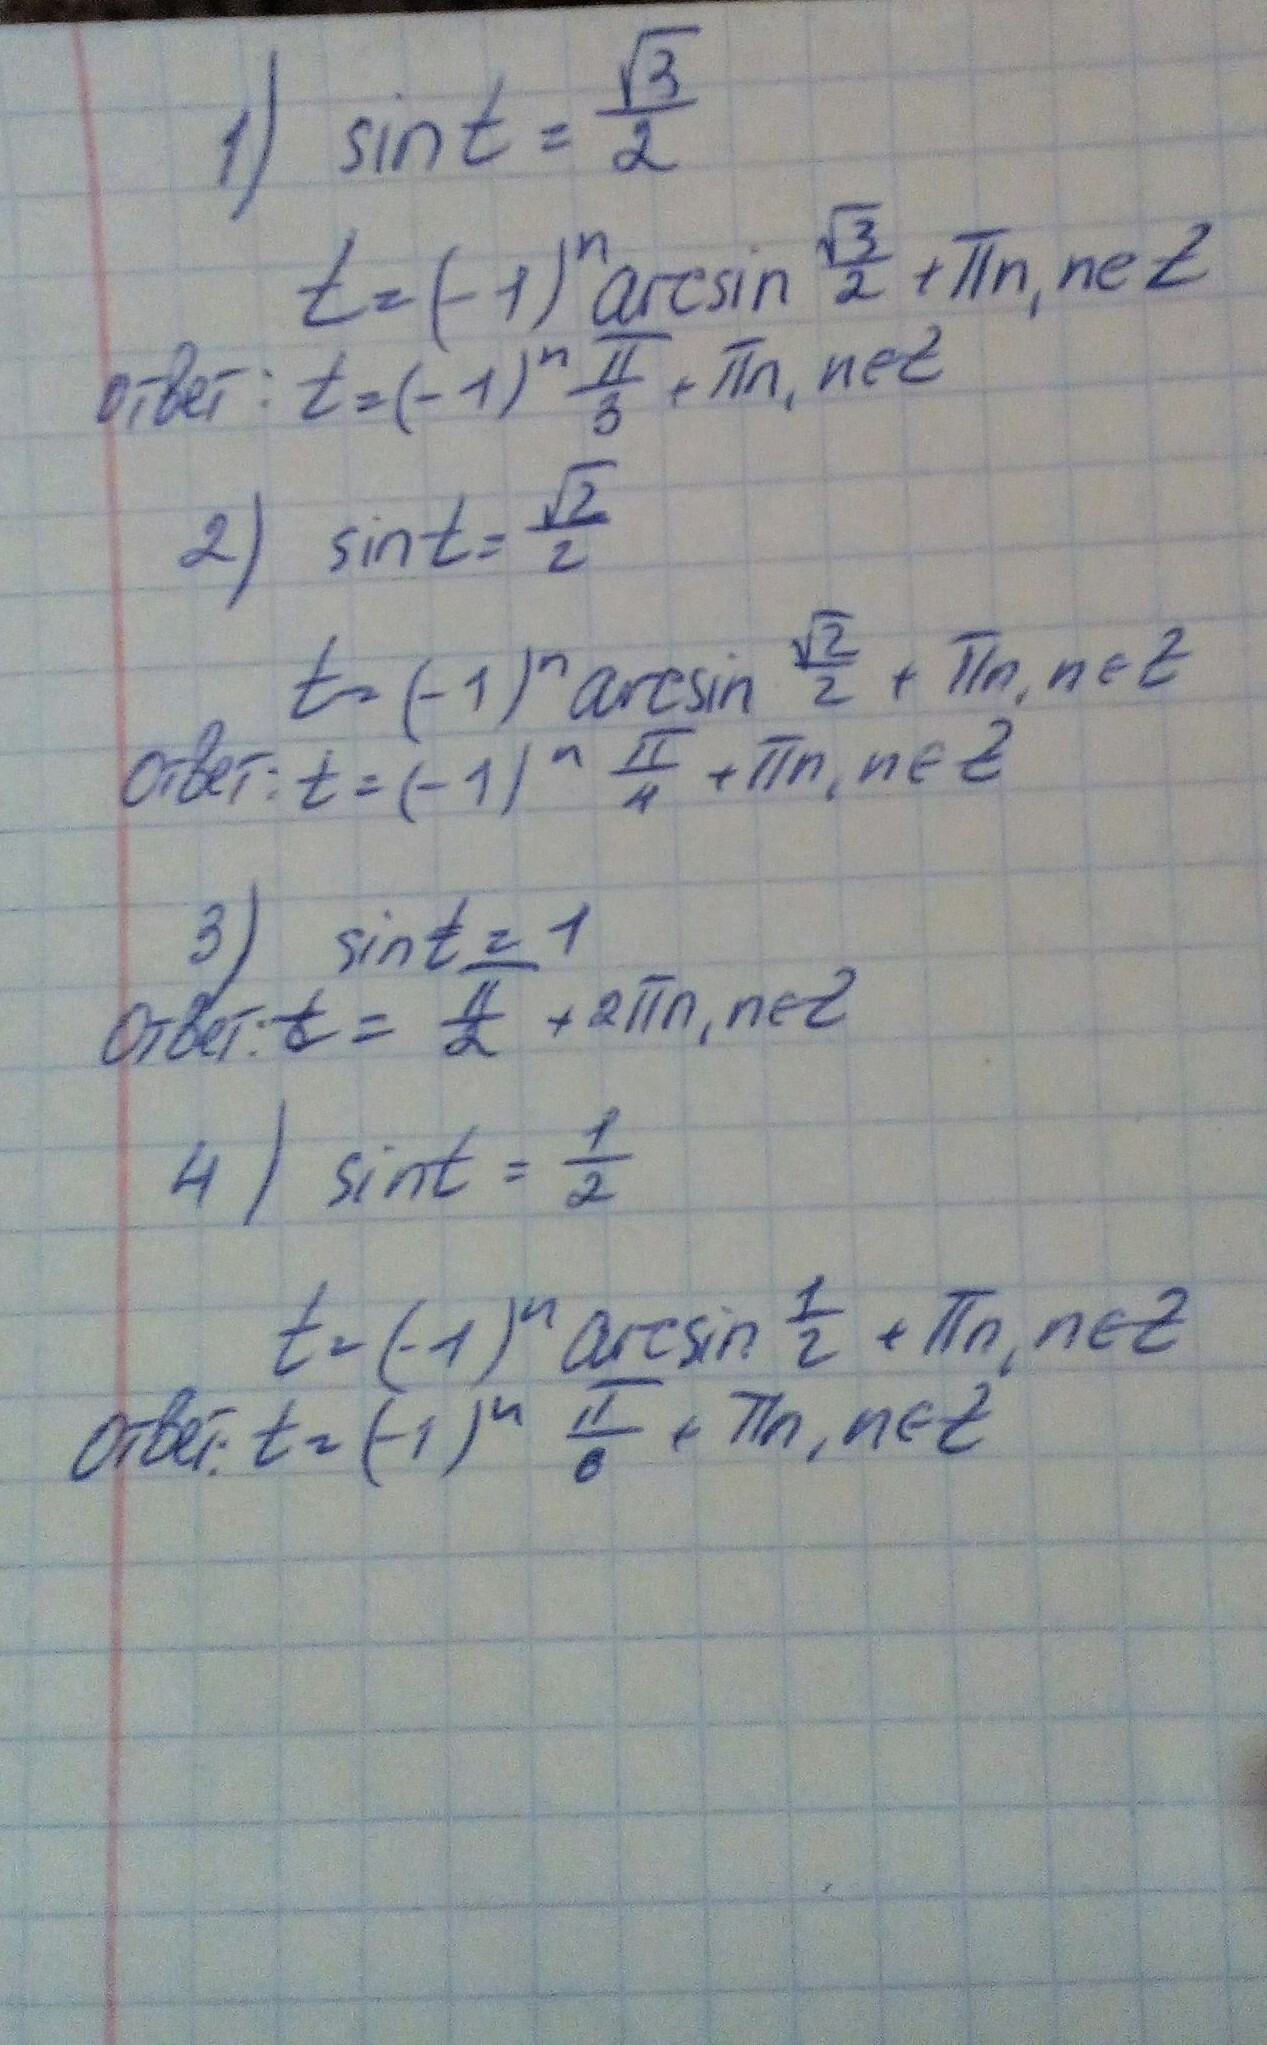 1) sin t = √3/2
t = (-1)ⁿ arcsin √3/2 + πn, n∈Z
Ответ: t = (-1)ⁿ π/3 + πn, n∈Z
2) sin t = √2/2
t = (-1)ⁿ arcsin √2/2 + πn, n∈Z
Ответ: t = (-1)ⁿ π/4 + πn, n∈Z
3) sin t = 1
Ответ: t = π/2 + 2πn, n∈Z
4) sin t = 1/2
t = (-1)ⁿ arcsin 1/2 + πn, n∈Z
Ответ: t = (-1)ⁿ π/6 + πn, n∈Z